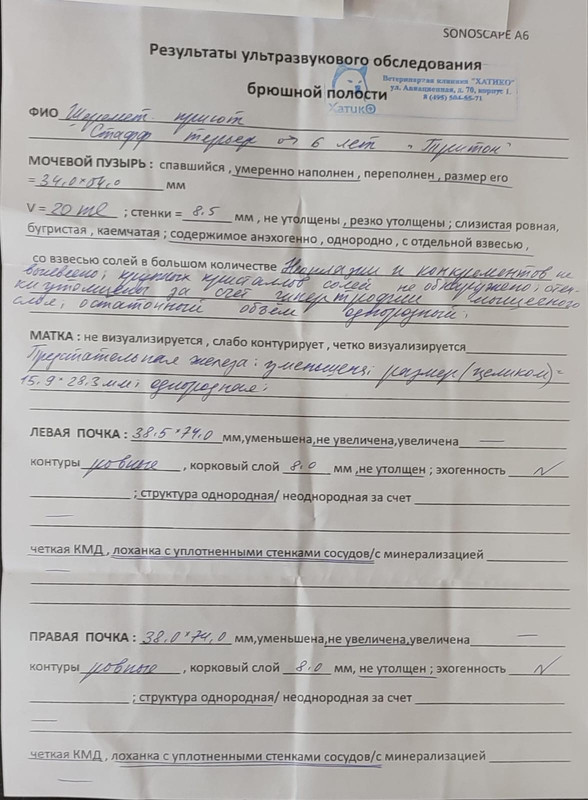 SONOSCAPE A6
Результаты ультразвукового обследования
брюшной полости
Ветеринарная клиника "ХАТИКО"
ул. Авиационная, д. 70, корпус 1.
8 (495) 504-95-71
Хатико
ФИО Шеремет. приют
Стафф терьер 6 лет "Тритон"
МОЧЕВОЙ ПУЗЫРЬ : спавшийся , умеренно наполнен , переполнен , размер его
= 34,0*64,0 мм
V = 20 ml ; стенки = 8.5 мм , не утолщены , резко утолщены ; слизистая ровная,
бугристая , каемчатая ; содержимое анэхогенно , однородно , с отдельной взвесью ,
со взвесью солей в большом количестве Неоплазии и конкрементов не
выявлено; крупных кристаллов солей не обнаружено; стен-
ки утолщены за счет гипертрофии мышечного
слоя; остаточный объем однородный;
МАТКА : не визуализируется , слабо контурирует , четко визуализируется
Предстательная железа: уменьшена; размер (целиком) =
15.9*28.3 мм; однородная;
ЛЕВАЯ ПОЧКА : 38.5*74.0 мм,уменьшена,не увеличена,увеличена —
контуры ровные , корковый слой 8.0 мм ,не утолщен ; эхогенность N
; структура однородная/ неоднородная за счет
—
четкая КМД , лоханка с уплотненными стенками сосудов/с минерализацией
—
ПРАВАЯ ПОЧКА : 38.0*74.0 мм,уменьшена,не увеличена,увеличена —
контуры ровные , корковый слой 8.0 мм, не утолщен ; эхогенность N
; структура однородная/ неоднородная за счет
—
четкая КМД , лоханка с уплотненными стенками сосудов/с минерализацией
—